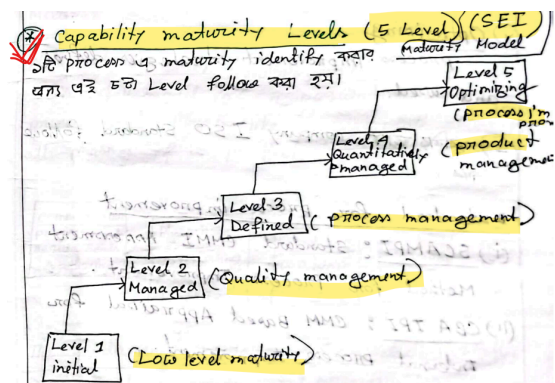 * Capability maturity Levels (5 Level) (SEI
Maturity Model
১টি process এ maturity identify করার
জন্য এই ৫টা Level follow করা হয়।
Level 5
Optimizing
(process im
Level 4
Quantitatively
managed
(product
manageme
Level 3
Defined
(process management)
Level 2
Managed
(Quality management)
Level 1
initial
(Low level maturity)